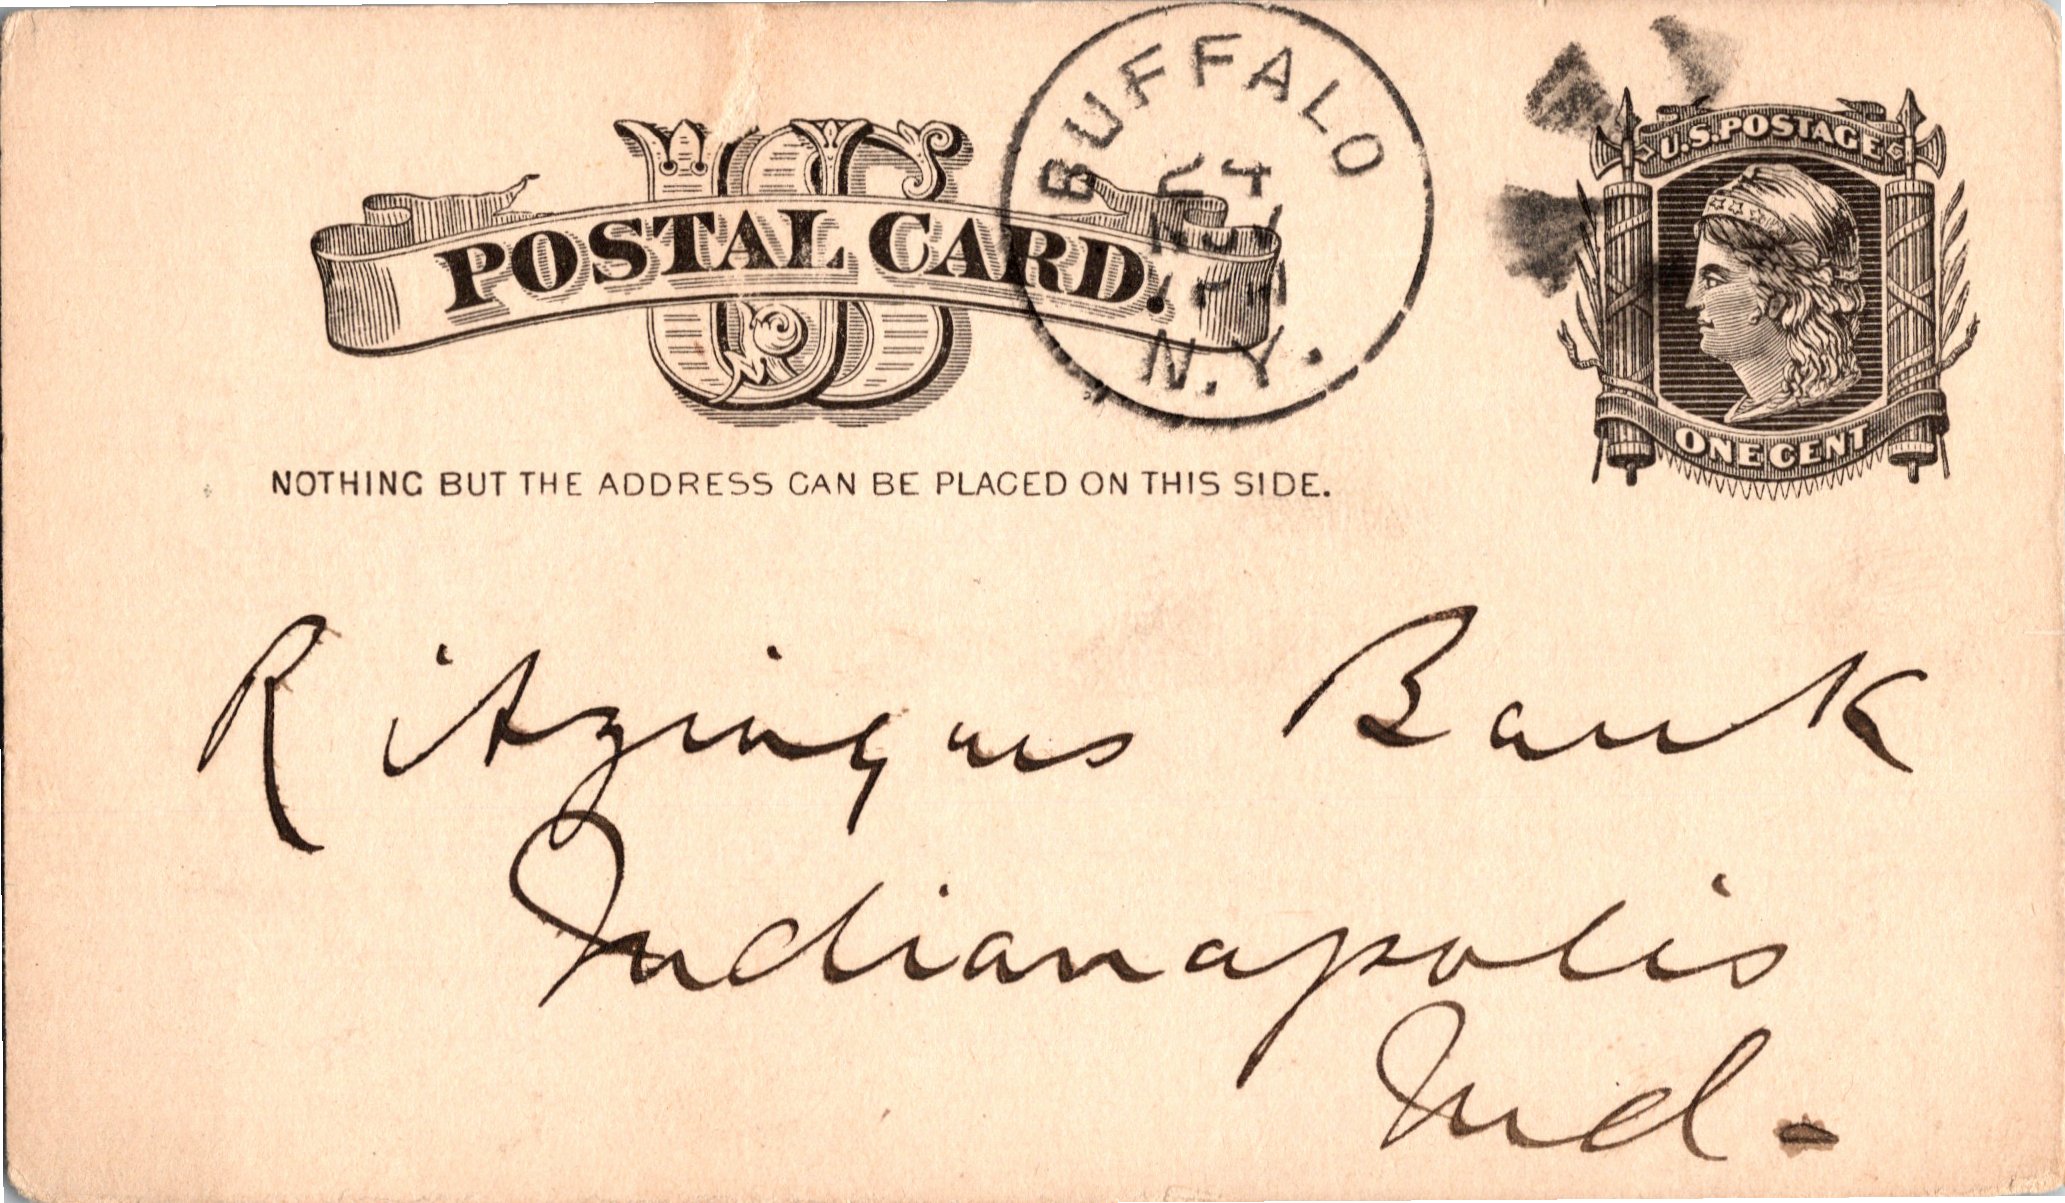 US
POSTAL CARD.
BUFFALO
N.Y.
U.S. POSTAGE
ONE CENT
NOTHING BUT THE ADDRESS CAN BE PLACED ON THIS SIDE.
Ritzingers Bank
Indianapolis
Ind.